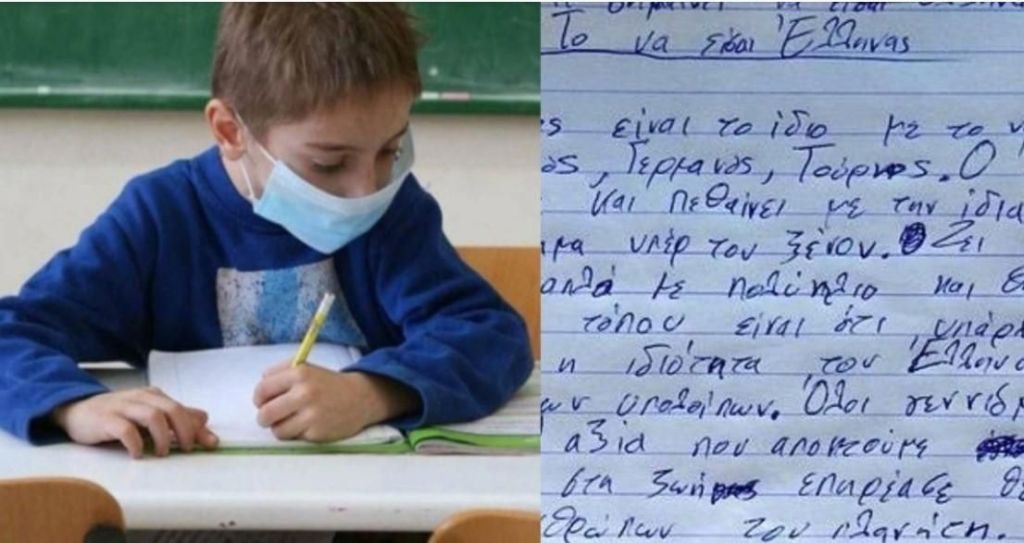 Το να είσαι Έλληνας
είναι το ίδιο με το
Γερμανός, Τούρκος. Ο
και πεθαίνει με την ίδια
υπέρ του ξένου. Ζει
απλά με πολύ ήλιο και
τόπου είναι ότι υπάρχ
η ιδιότητα του Έλληνα
ων υπολοίπων. Όλοι γεννιόμ
αξία που αποκτούμε
στη ζωή επηρέασε θε
θρώπων του πλανήτη.